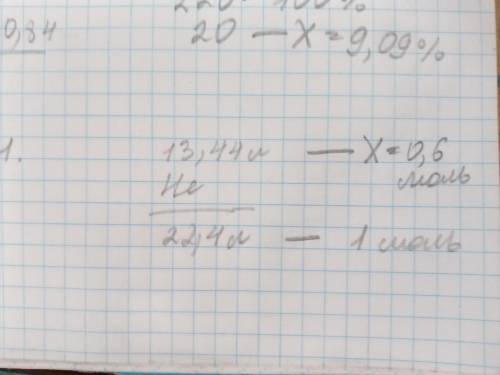 220 - 100%
0,84
20 — X = 9,09%
1.
13,44 л — X = 0,6
моль
He
22,4 л — 1 моль